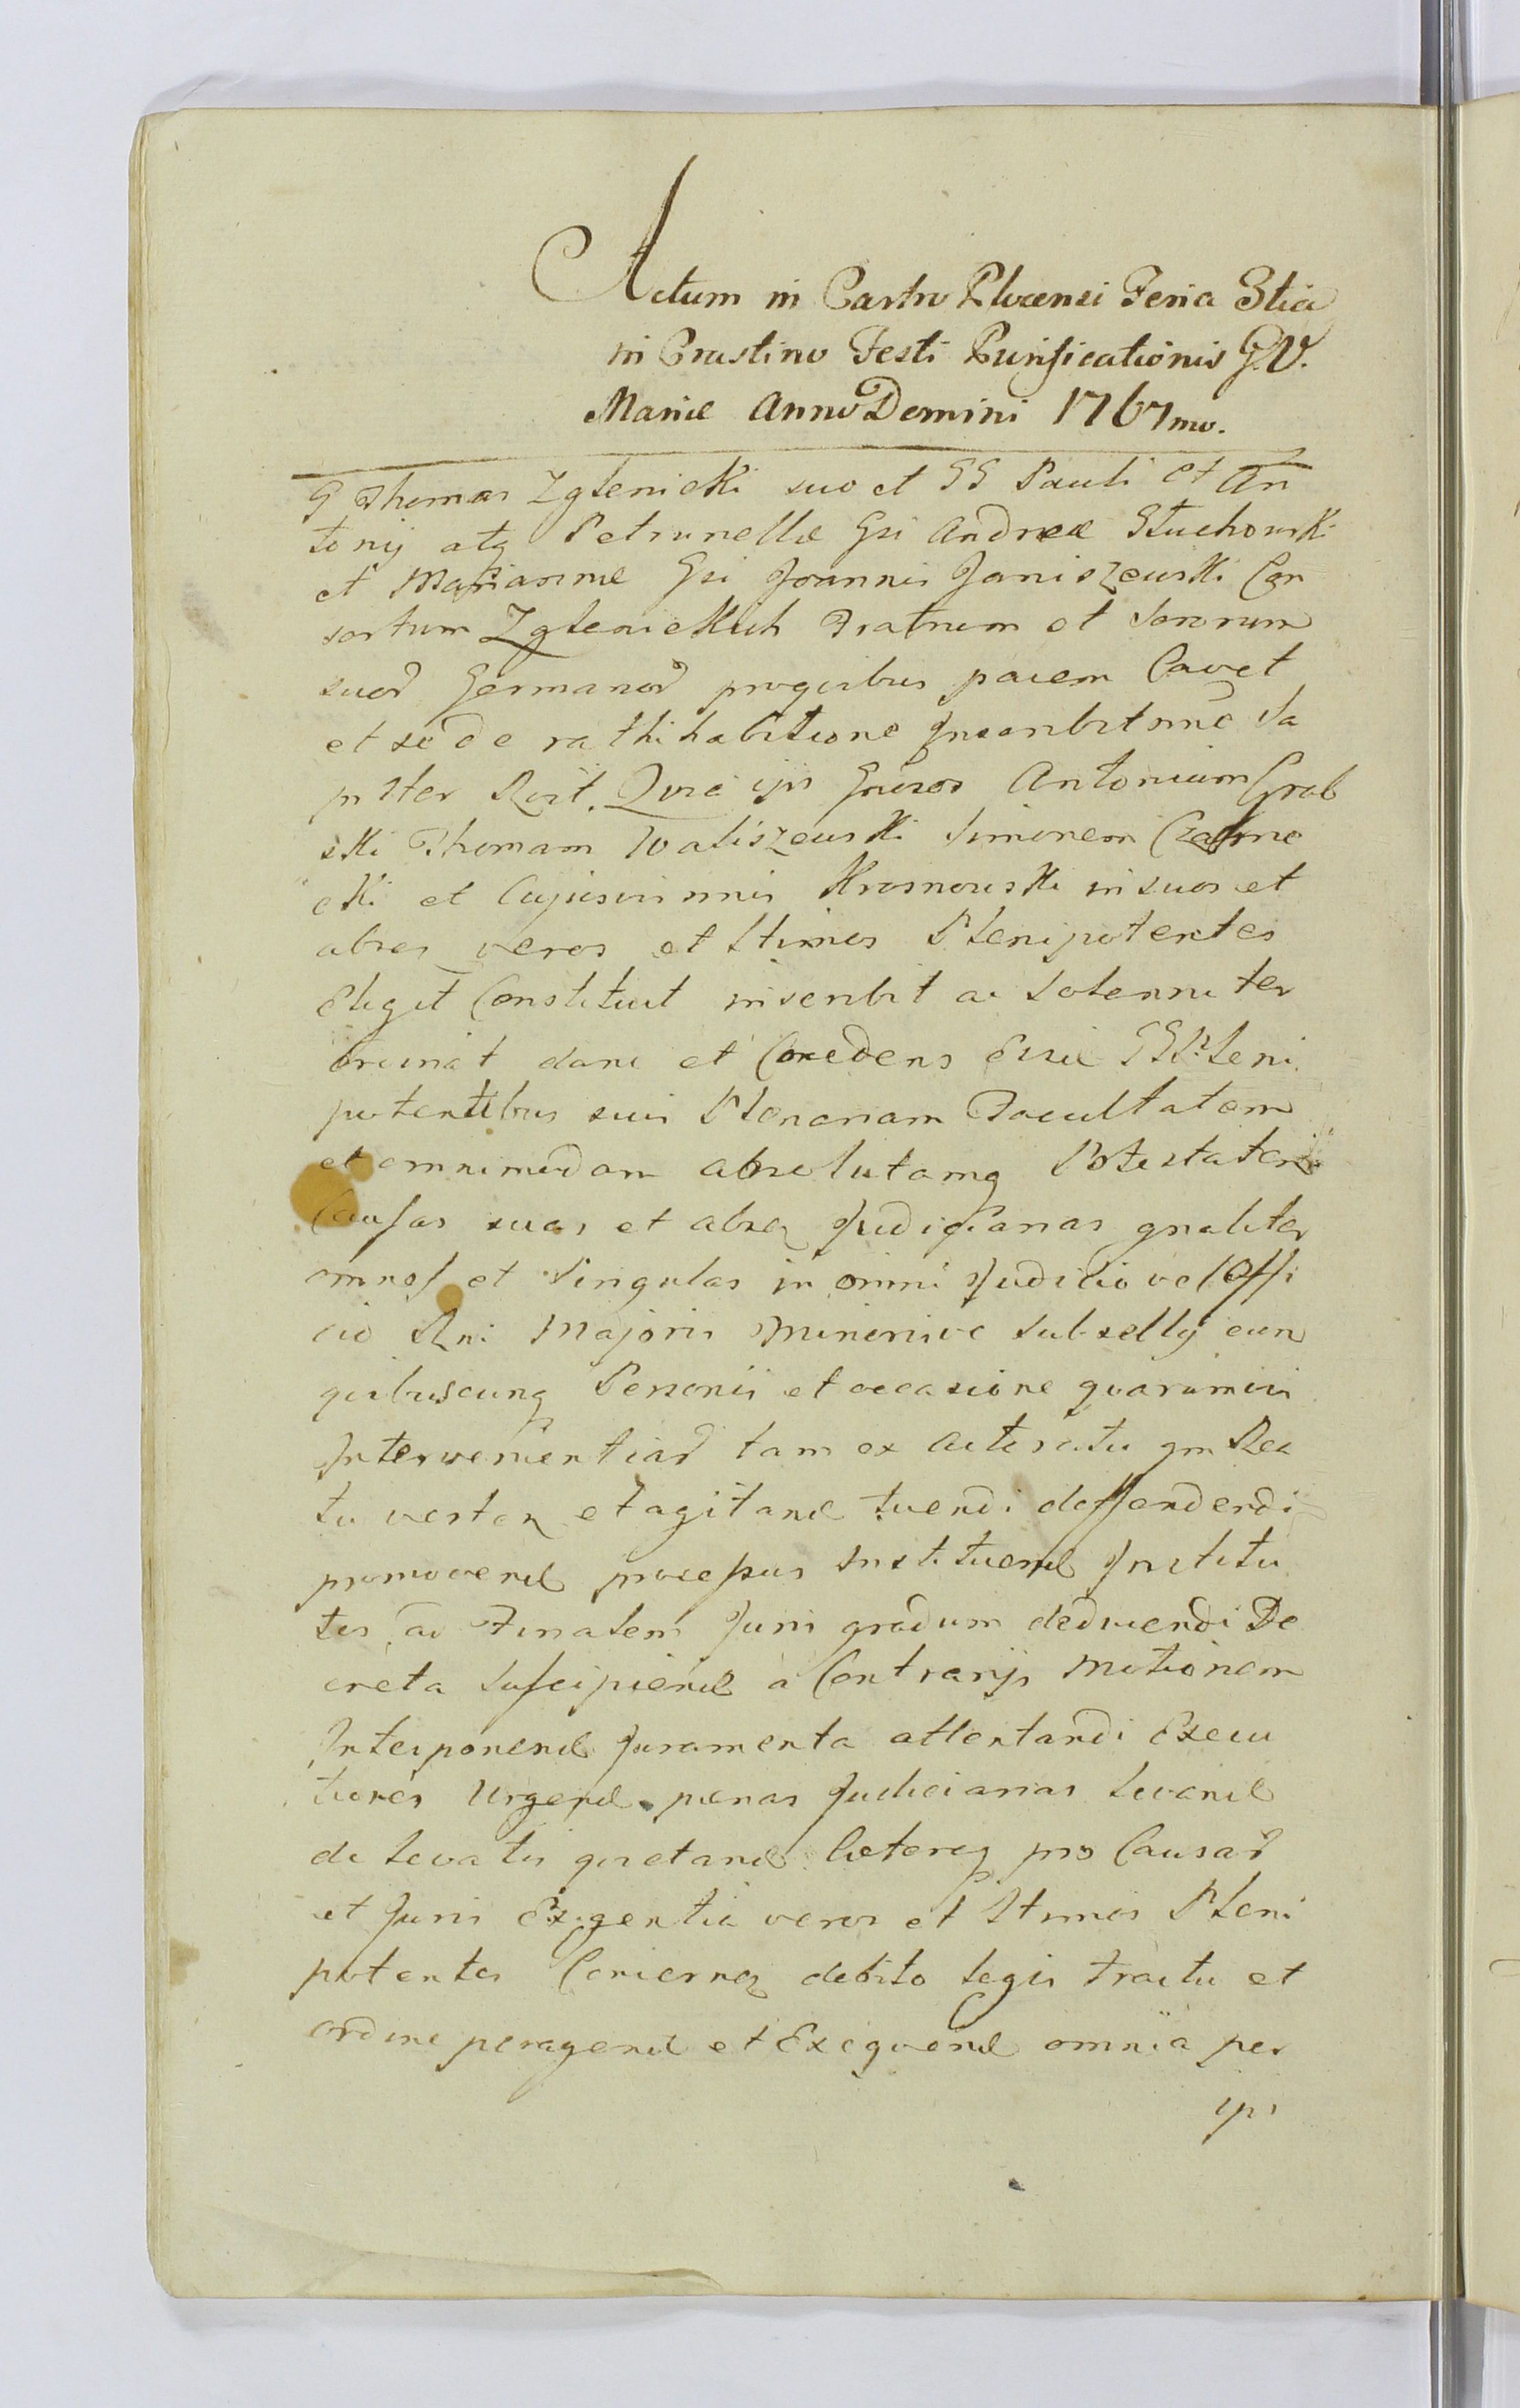 Actum in Castro Plocensi Feria 3tia
in Crastino Festi Purificationis G.V.
Mariæ Anno Domini 1767mo.
G Thomas Zglenicki suo et GG Pauli et An
tonij atq Petrunellæ Gsi Andreæ Stuchowski
et Mariannæ Gsi Joannis Janiszewski Con
sortum Zglenickich Fratrum et Sororum
suoȓ Germanoȓ pro quibus pacem Cavet
et se de rathihabitione Inscribit
Antonium Grab
ski Thomam Waliszewski Simonem
cki et Cujusvis nnis Krosnowski in suos et
abres veros et Ltimos Plenipotentes
Eligit Constituit inscribit ac Solenniter
ordinat dans et Concedens Eisd GG Pleni
potentibus suis Plenariam Facultatem
et omnimodam absolutamq Potestatem
Causas suas et abrq Judiciarias gnaliter
omnes et Singulas in omni Judicio vel Offi
cio Rni Majoris Minorisve Subsellij cum
quibuscunq Personis et occasione quarumvis
Intervenientiaȓ tam ex Actoratu qm Rea
tu vertenʒ et agitand tuendi deffendendi
promovend processus Instituend Institu
tos ad Finalem Juris gradum deducendi De
creta Suscipiend a Contrarijs Motionem
Interponend Juramenta attentandi Execu
tiones Urgend pænas Judiciarias Levand
de Levatis quietand Cæteraq pro Causaȓ
et Juris Exigentia veros et Ltimos Pleni
potentes Concernen debito Legis tractu et
ordine peragend et Exequend omnia per
ips